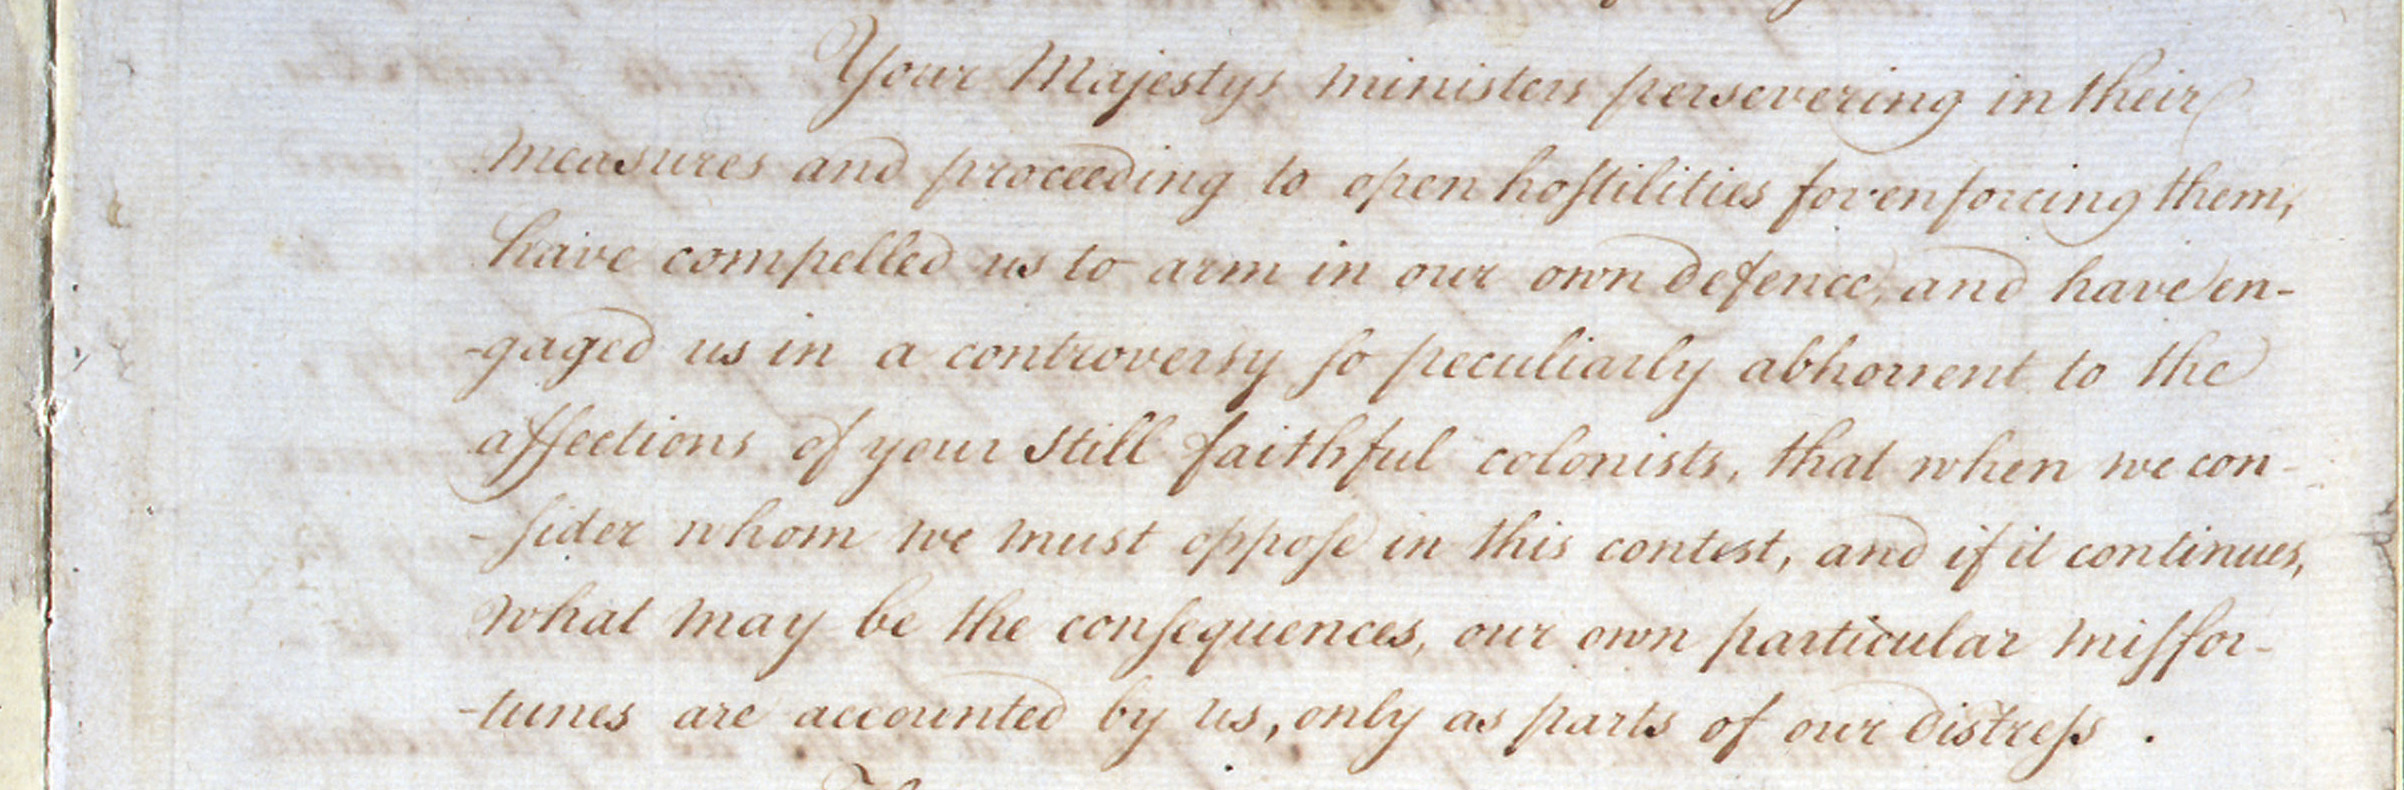 Your Majestys ministers persevering in their
measures and proceeding to open hoſtilities for enforcing them,
have compelled us to arm in our own defence, and have en-
-gaged us in a controversy ſo peculiarly abhorrent to the
affections of your still faithful colonists, that when we con-
-ſider whom we must oppoſe in this contest, and if it continues,
what may be the conſequences, our own particular miſfor-
-tunes are accounted by us, only as parts of our distreſs.